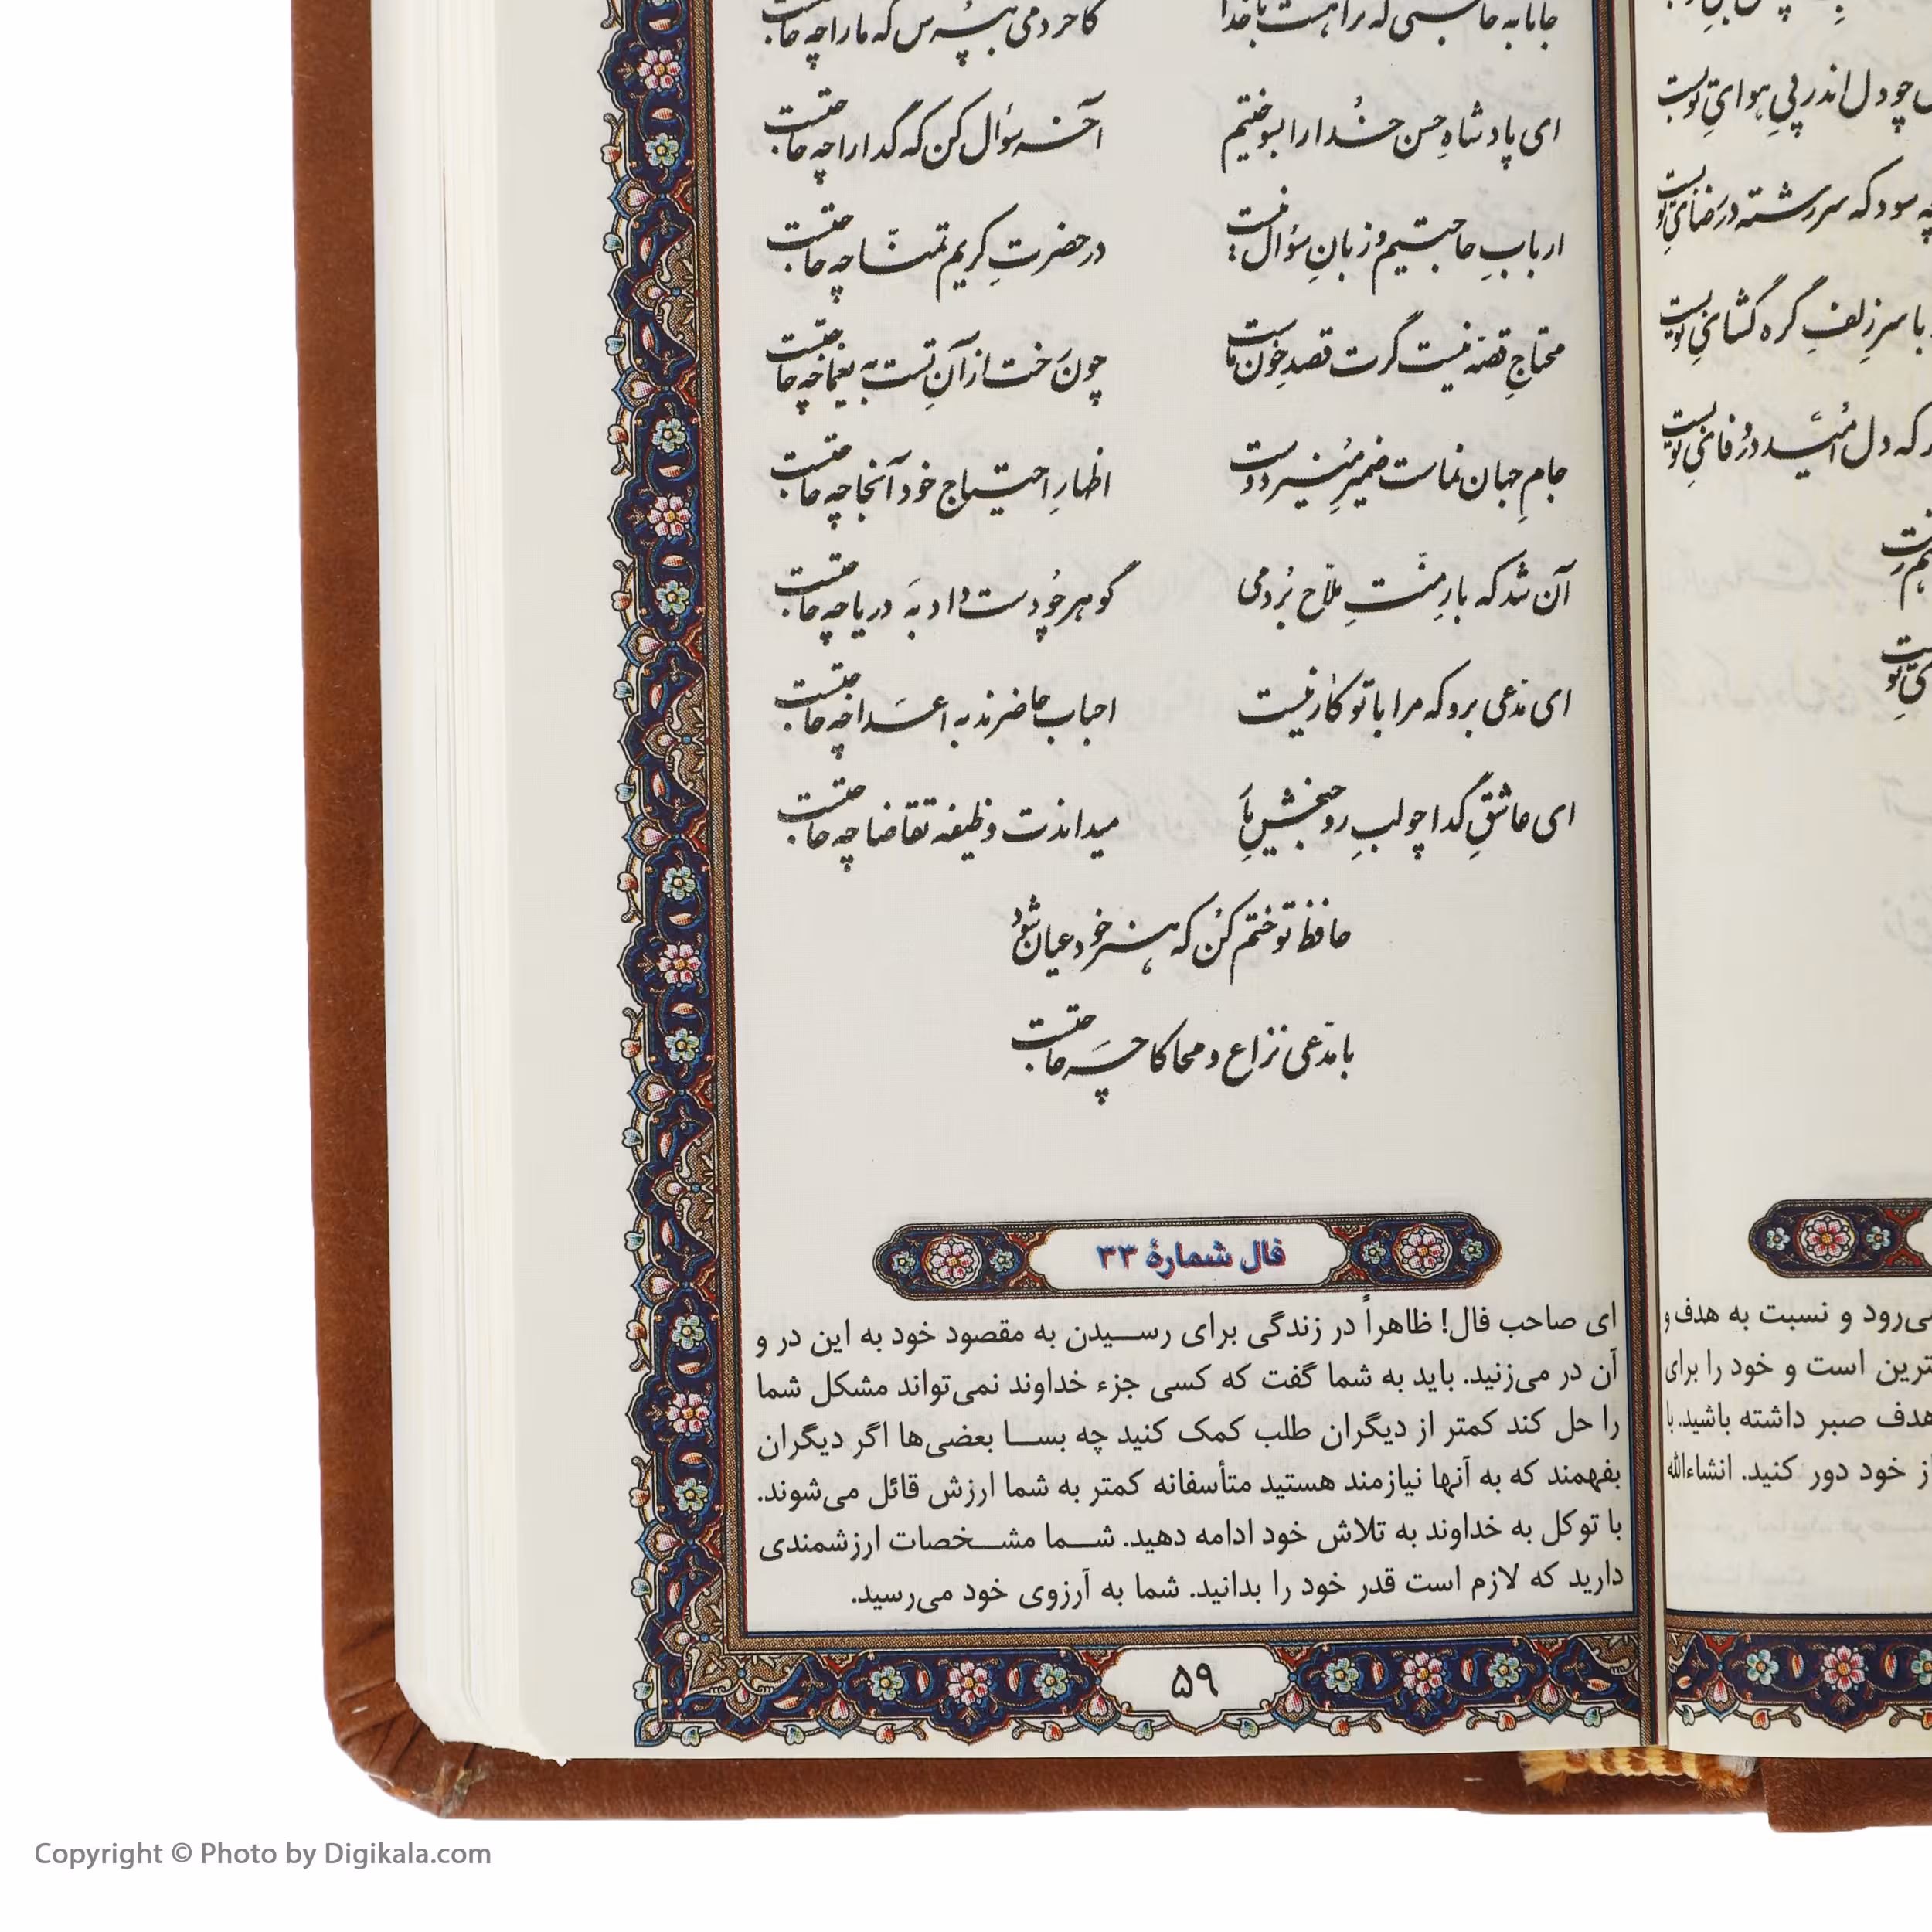 جانا به حاجتی که ترا هست با خدا کاخر دمی بپرس که ما را چه حاجتست
ای پادشاهِ حسن خدا را بسوختیم آخر سؤال کن که گدا را چه حاجتست
اربابِ حاجتیم و زبانِ سؤال نیست در حضرتِ کریم تمنّا چه حاجتست
محتاجِ قصّه نیست گرت قصدِ خون ماست چون رَخت از آنِ تست به یغما چه حاجتست
جامِ جهان نماست ضمیرِ مُنیر دوست اظهارِ احتیاج خود آنجا چه حاجتست
آن شد که بارِ منّتِ ملّاح بُردمی گوهر چُو دست داد بَه دریا چه حاجتست
ای مدّعی برو که مرا با تو کار نیست احباب حاضرند به اعدا چه حاجتست
ای عاشقِ گدا چو لبِ روحبخشِ یار میداندت وظیفه تقاضا چه حاجتست
حافظ تو ختم کُن که هنر خود عیان شود
با مدّعی نزاع و محاکا چه حاجتست
فال شمارهٔ ۳۳
ای صاحب فال! ظاهراً در زندگی برای رسیدن به مقصود خود به این در و
آن در می‌زنید. باید به شما گفت که کسی جزء خداوند نمی‌تواند مشکل شما
را حل کند کمتر از دیگران طلب کمک کنید چه بسا بعضی‌ها اگر دیگران
بفهمند که به آنها نیازمند هستید متأسفانه کمتر به شما ارزش قائل می‌شوند.
با توکل به خداوند به تلاش خود ادامه دهید. شما مشخصات ارزشمندی
دارید که لازم است قدر خود را بدانید. شما به آرزوی خود می‌رسید.
۵۹
چو دل اندر پیِ هوایِ تو بست
چه سود که سررشته در رضایِ تو بست
با سرِ زلفِ گره گشایِ تو بست
که دل امّید در وفایِ تو بست
می‌رود و نسبت به هدف و
است و خود را برای
هدف صبر داشته باشید. با
از خود دور کنید. انشاءالله
Copyright © Photo by Digikala.com